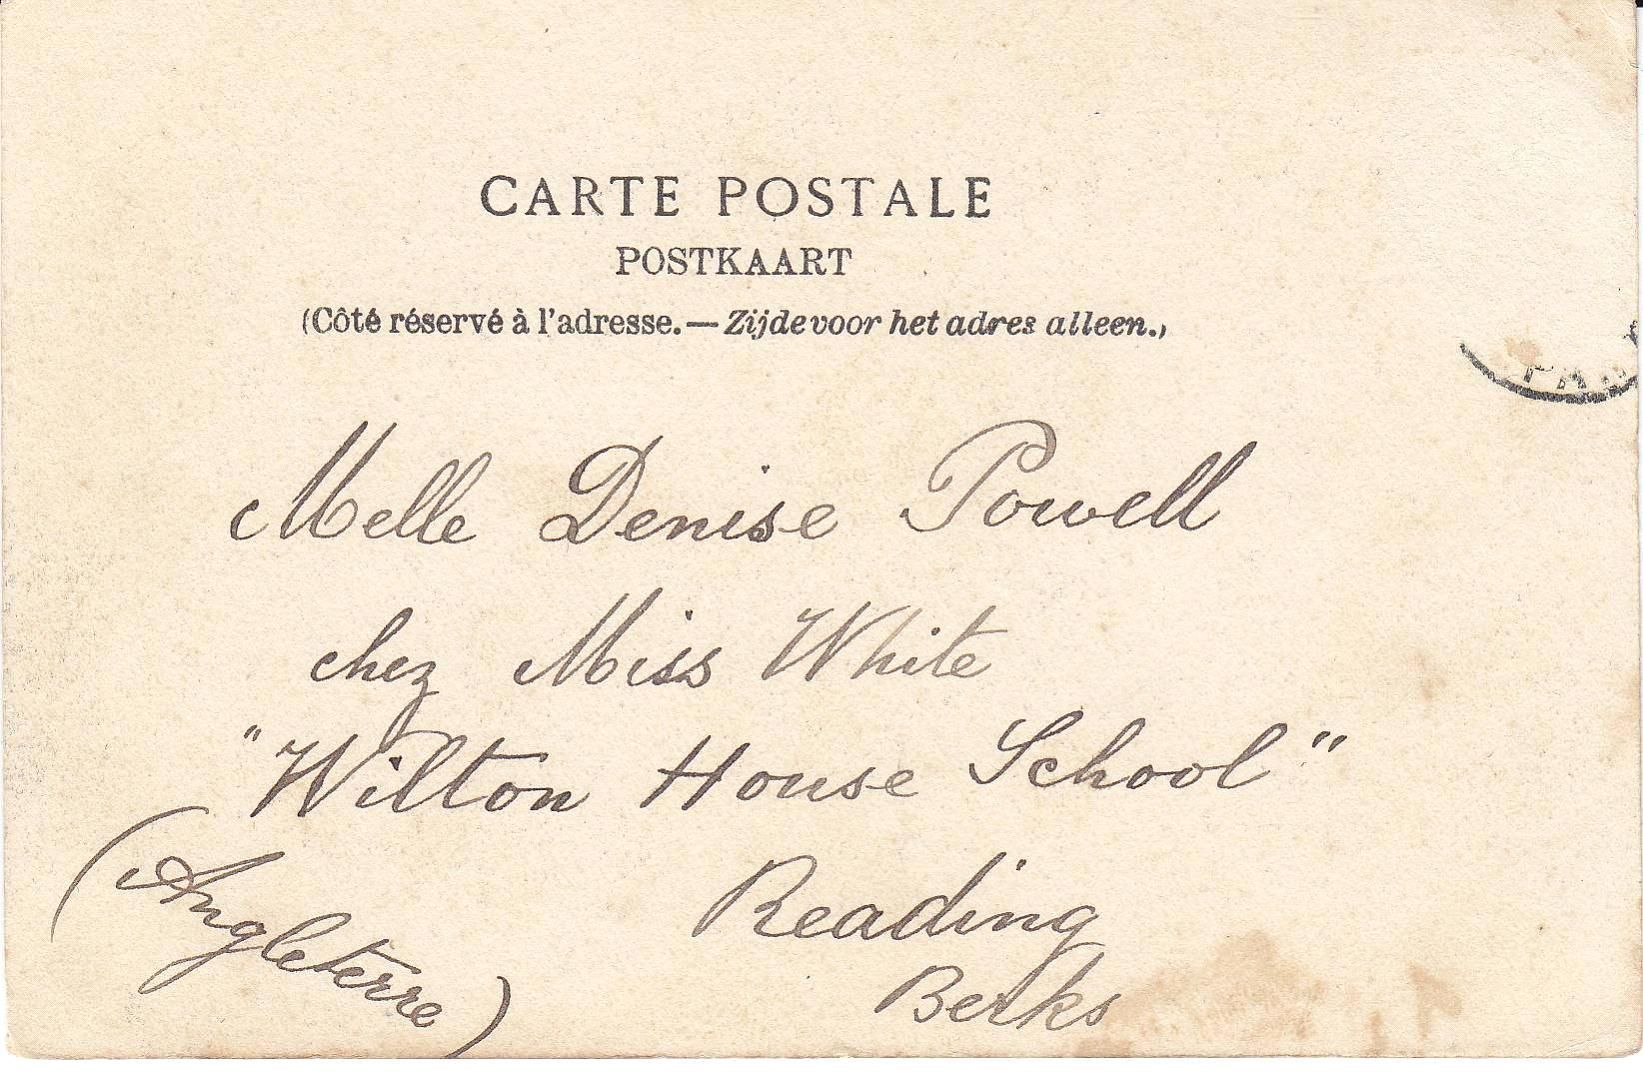 CARTE POSTALE
POSTKAART
(Côté réservé à l'adresse.—Zijde voor het adres alleen.)
Melle Denise Powell
chez Miss White
"Wilton House School"
Reading
Berks
(Angleterre)